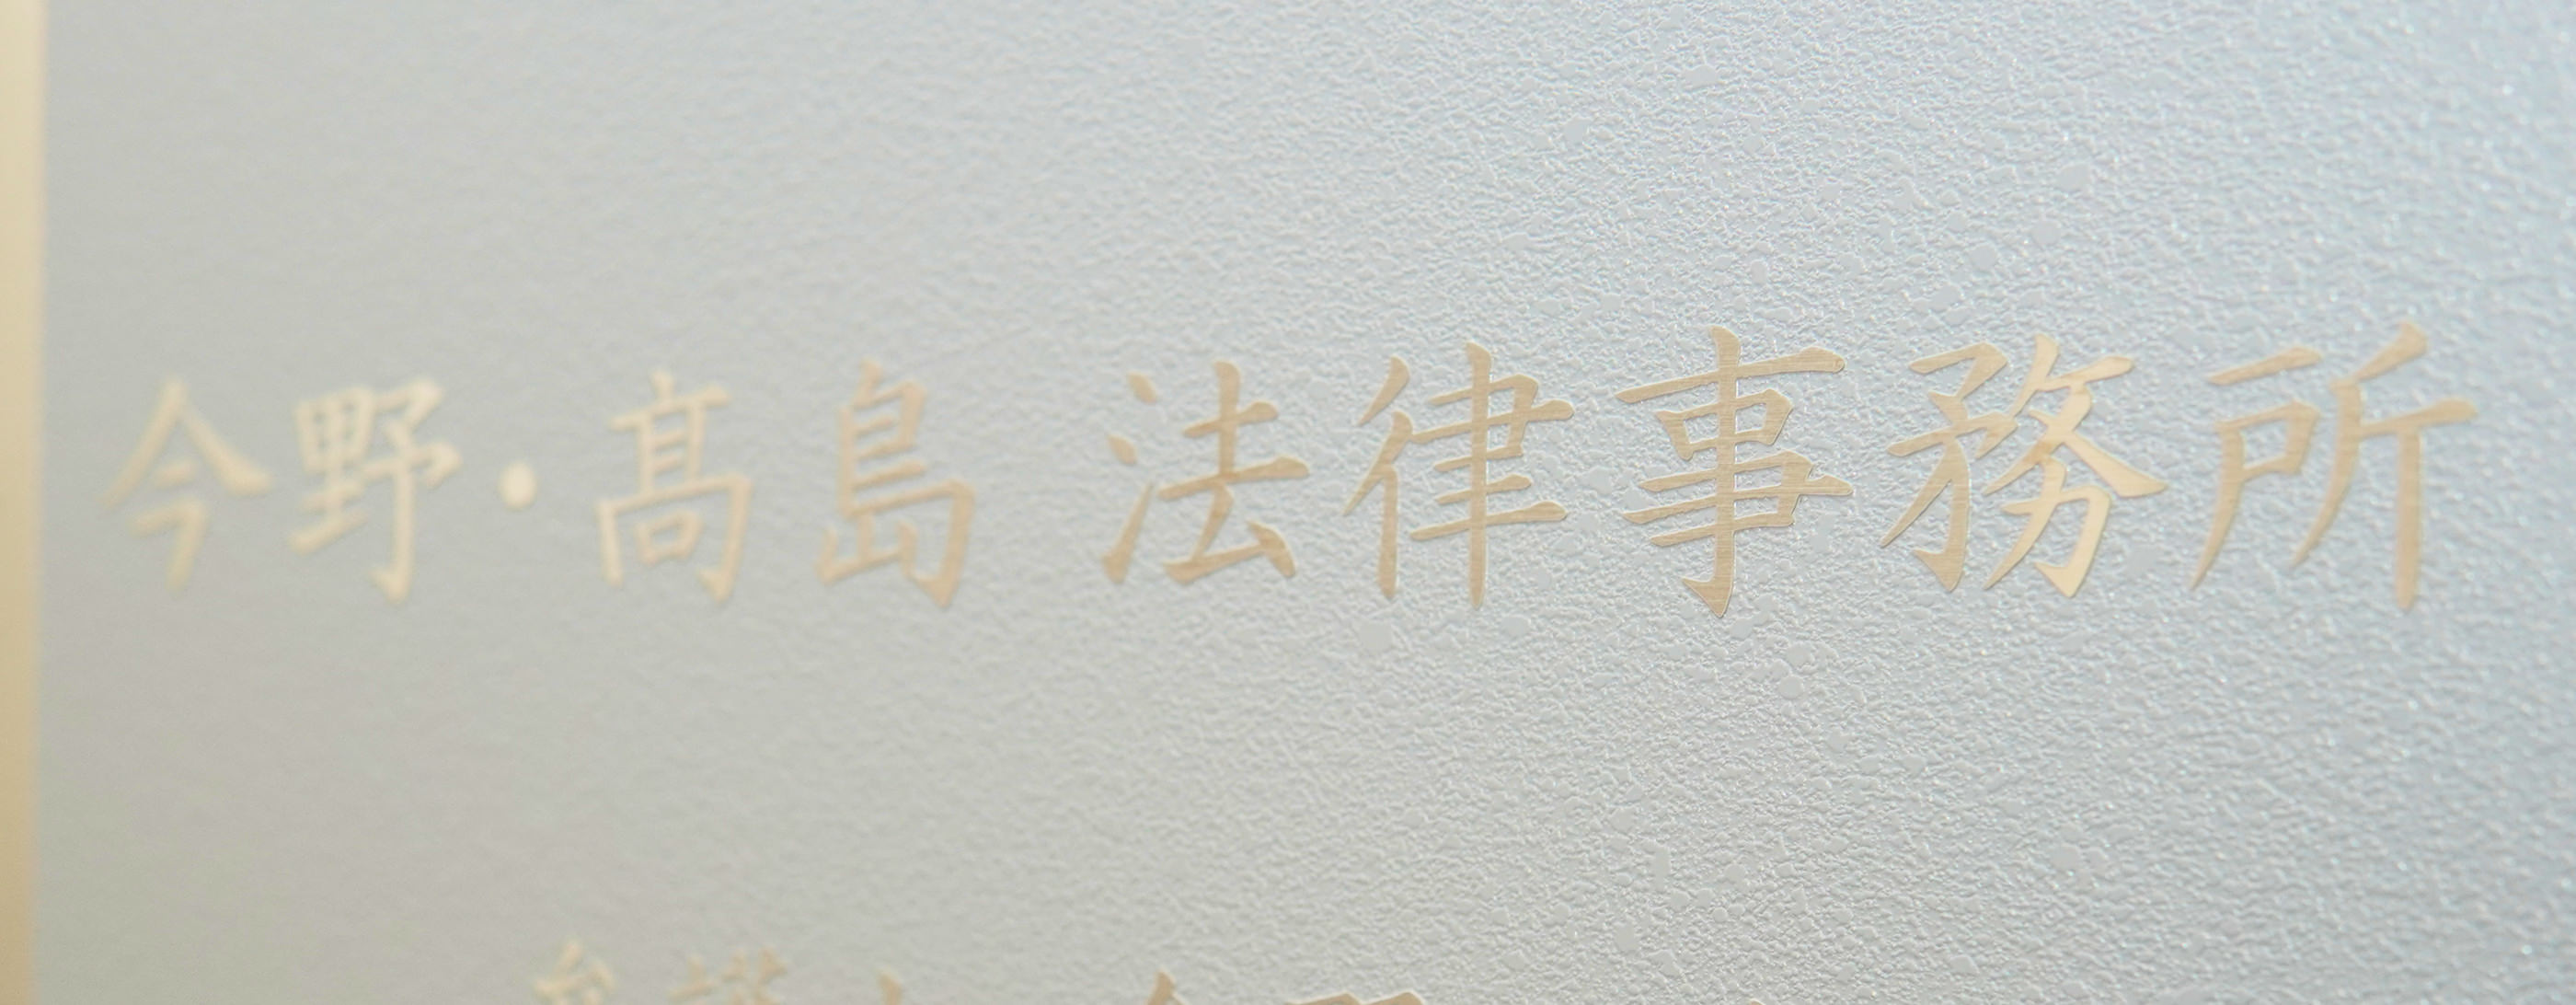 今野・髙島 法律事務所